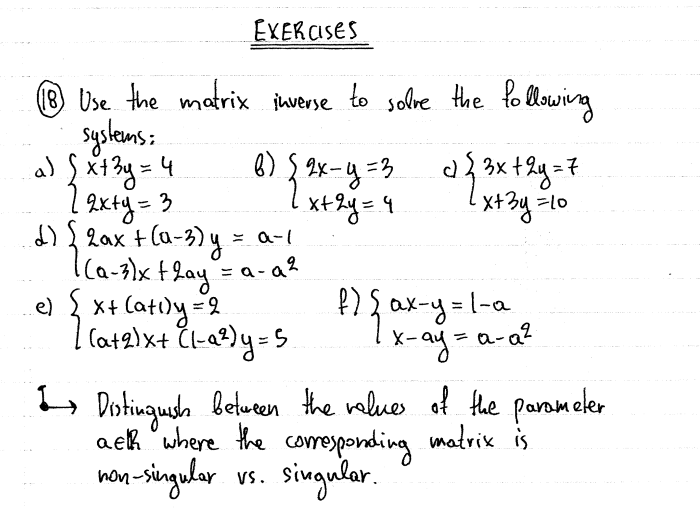 EXERCISES
(18) Use the matrix inverse to solve the following
systems:
a) { x+3y = 4 b) { 2x-y = 3 c) { 3x+2y = 7
2x+y = 3 x+2y = 4 x+3y = 10
d) { 2ax + (a-3)y = a-1
(a-3)x + 2ay = a-a²
e) { x + (a+1)y = 2 f) { ax-y = 1-a
(a+2)x + (1-a²)y = 5 x-ay = a-a²
↳ Distinguish between the values of the parameter
a∈ℝ where the corresponding matrix is
non-singular vs. singular.